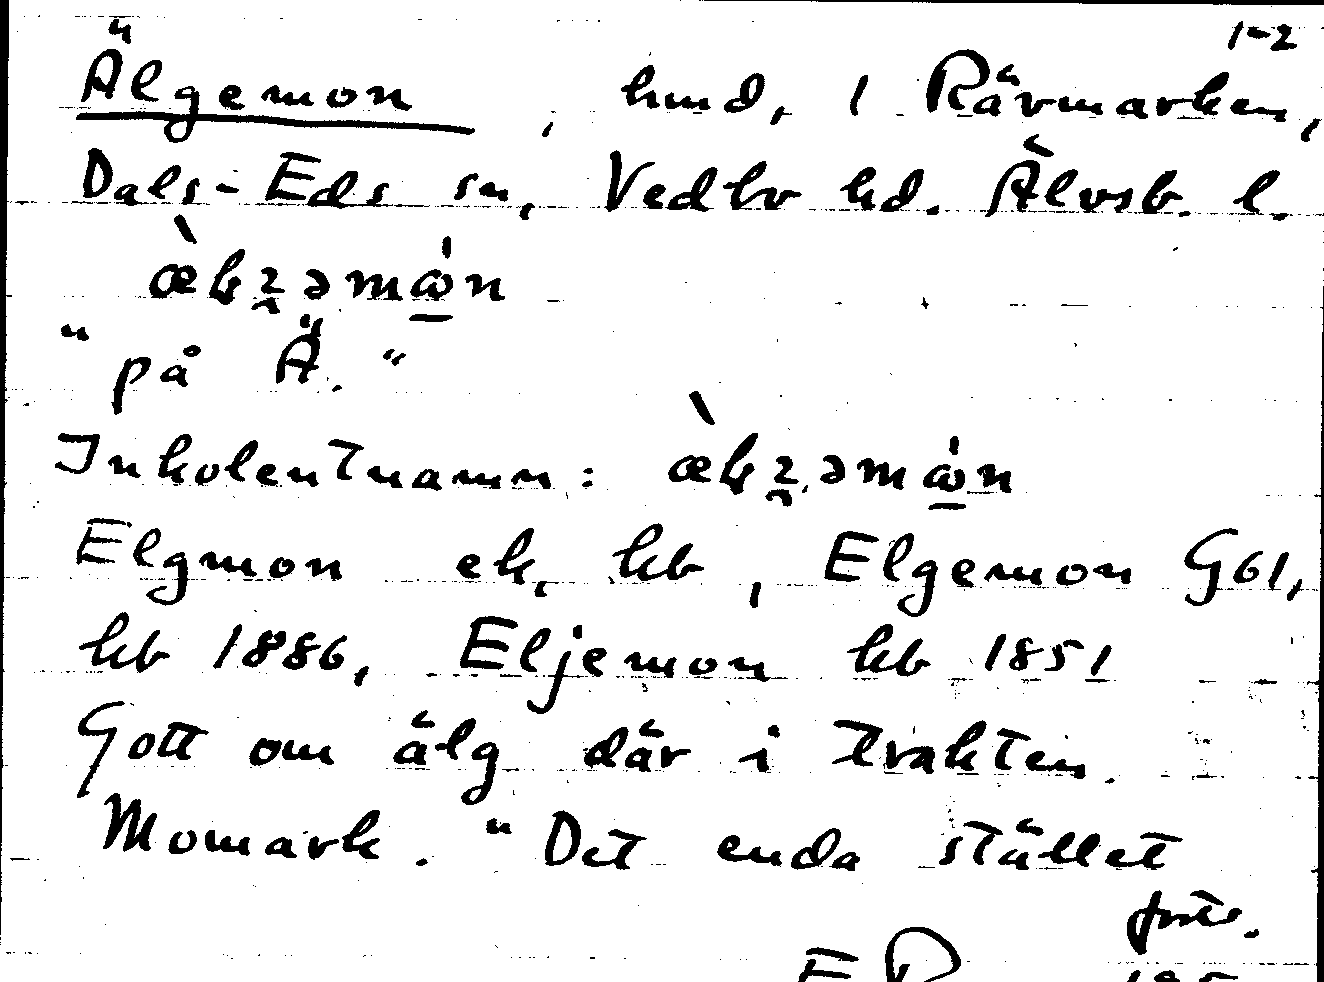 1-2
Älgemon, hmd, i Rävmarken,
Dals-Eds sn, Vedbo hd. Älvsb. l.
"på Ä."
Inkolentnamn:
Elgmon ek, kb, Elgemon G61,
kb 1886, Eljemon kb 1851
Gott om älg där i trakten.
Momark. "Det enda stället
forts.